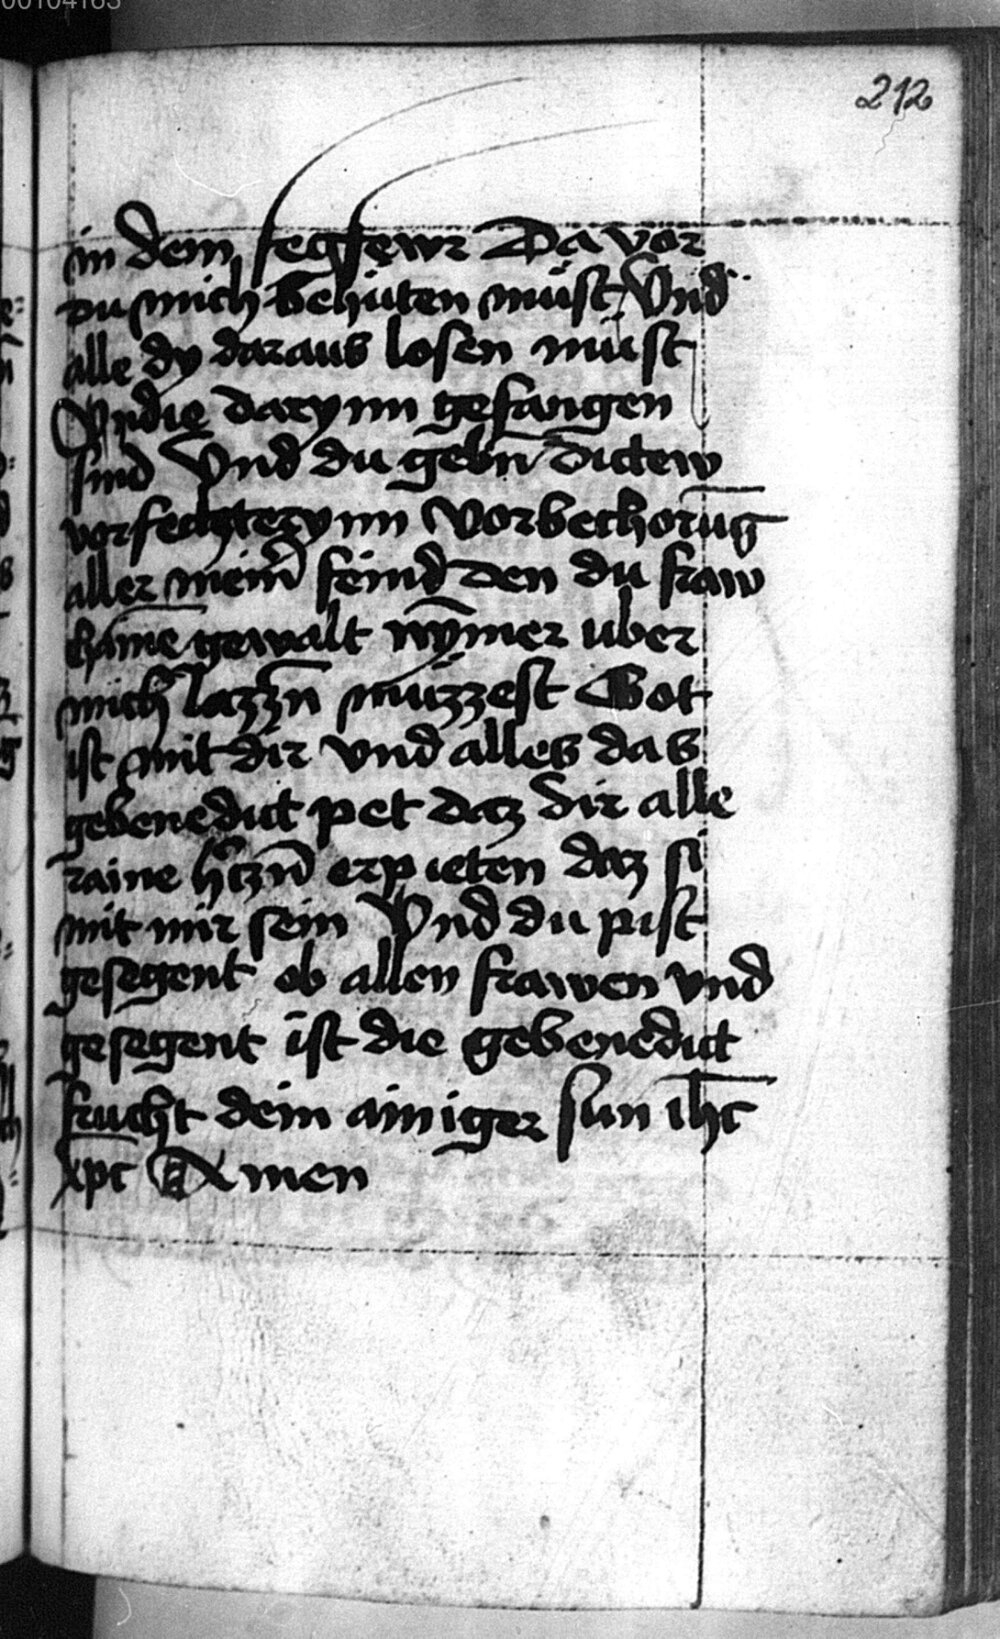 00104163
212
in dem fegfewr Da vor
du mich behüten müst Vnd
alle dy daraus losen müst
Vndie darynn gefangen
sind Vnd du gebn̄ dictew
vorfechterynn Vorbechorūg
aller meinr̄ feind den du fraw
chāine gewalt nȳmer uber
mich lazzn̄ müzzest Got
ist mit dir vnd alles das
gebenedut pet daz dir alle
raine hczn̄ erpieten daz si
mit mir sein Vnd du pist
gesegent ob allen frawen vnd
gesegent ist die gebenedut
frucht dein ainiger sun ih̄c
xp̄c Amen